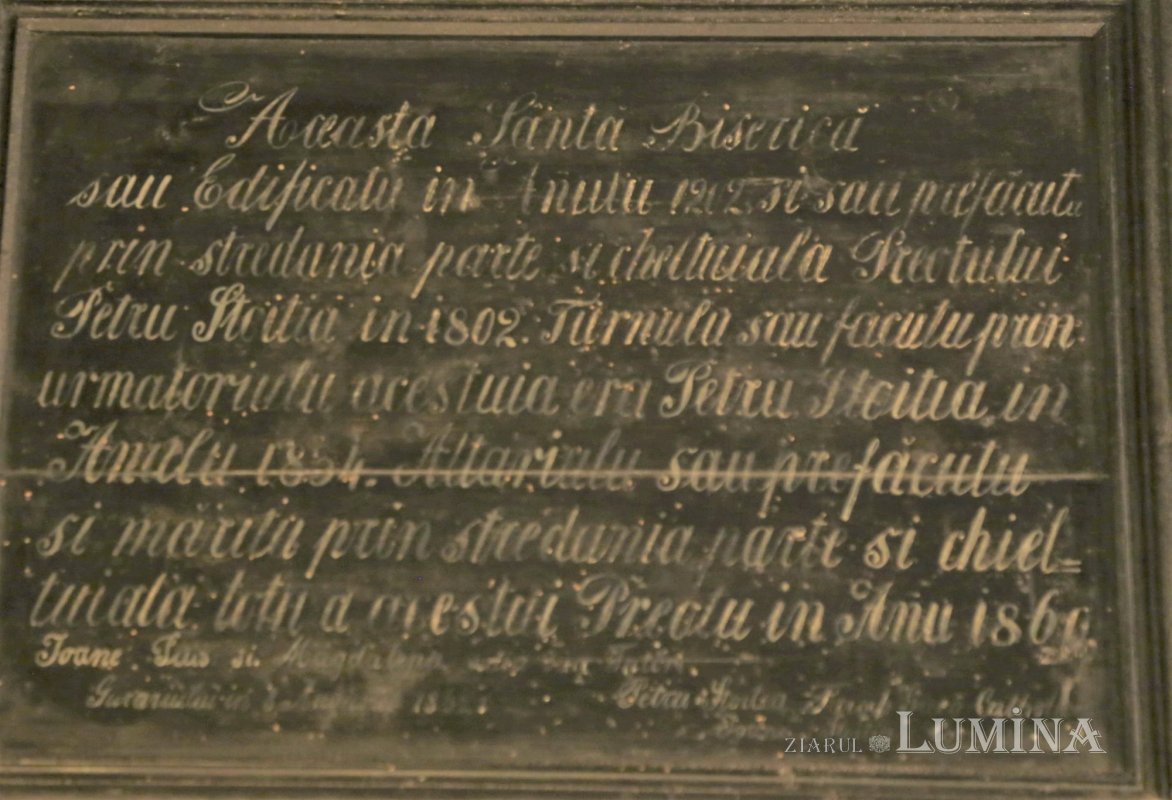 Aceasta Sânta Biserică
sau Edificatu in Anulu si sau prefăcutu
prin stredania parte si cheltuiala Preotului
Petru Stoitia in 1802. Turnulu sau facutu prin
urmatoriulu acestuia era Petru Stoitia in
Anulu 1854. Altariulu sau prefăcutu
si măritu prin stredania parte si chiel=
tuiala totu a acestui Preotu in Anu
Ioane si Magdalena
Petru Stoitia
ZIARUL LUMINA